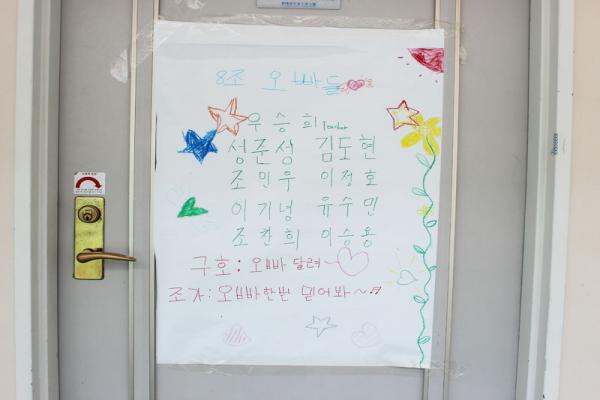 8조 오빠들
우승희 Teacher
성준성 김도현
조민우 이정호
이기녕 유수민
조찬희 이승용
구호: 오빠 달려~
조가: 오빠 한번 믿어봐~♬